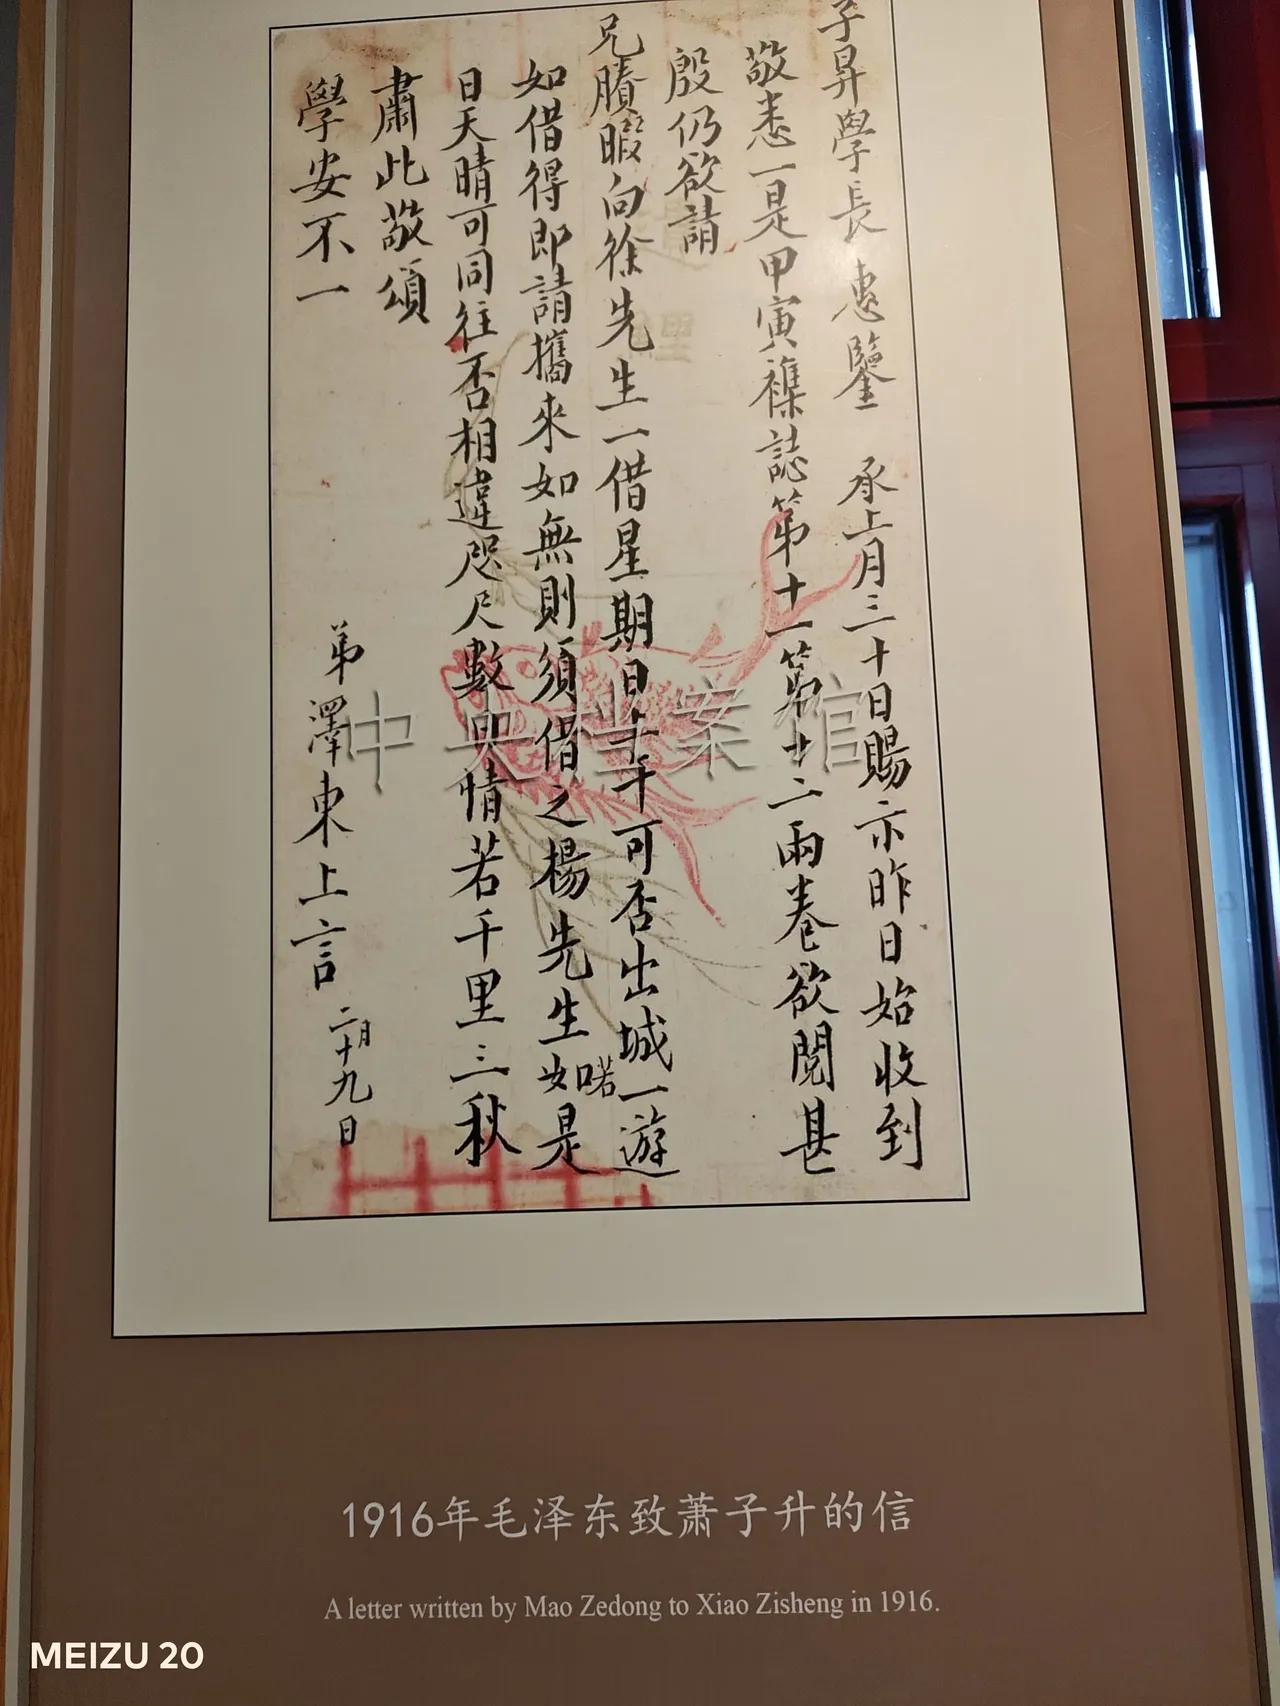 子昇學長 惠鑒 承上月三十日賜示昨日始收到
敬悉一是甲寅襍誌第十一第十二兩卷欲閱甚
殷仍欲請
兄賸暇向徐先生一借星期日上午可否出城一遊
如借得即請攜來如無則須借之楊先生如是
喏
日天晴可同往否相違咫尺數日情若千里三秋
肅此敬頌
學安不一
弟澤東上言
二月
十九日
中央档案馆
1916年毛泽东致萧子升的信
A letter written by Mao Zedong to Xiao Zisheng in 1916.
MEIZU 20